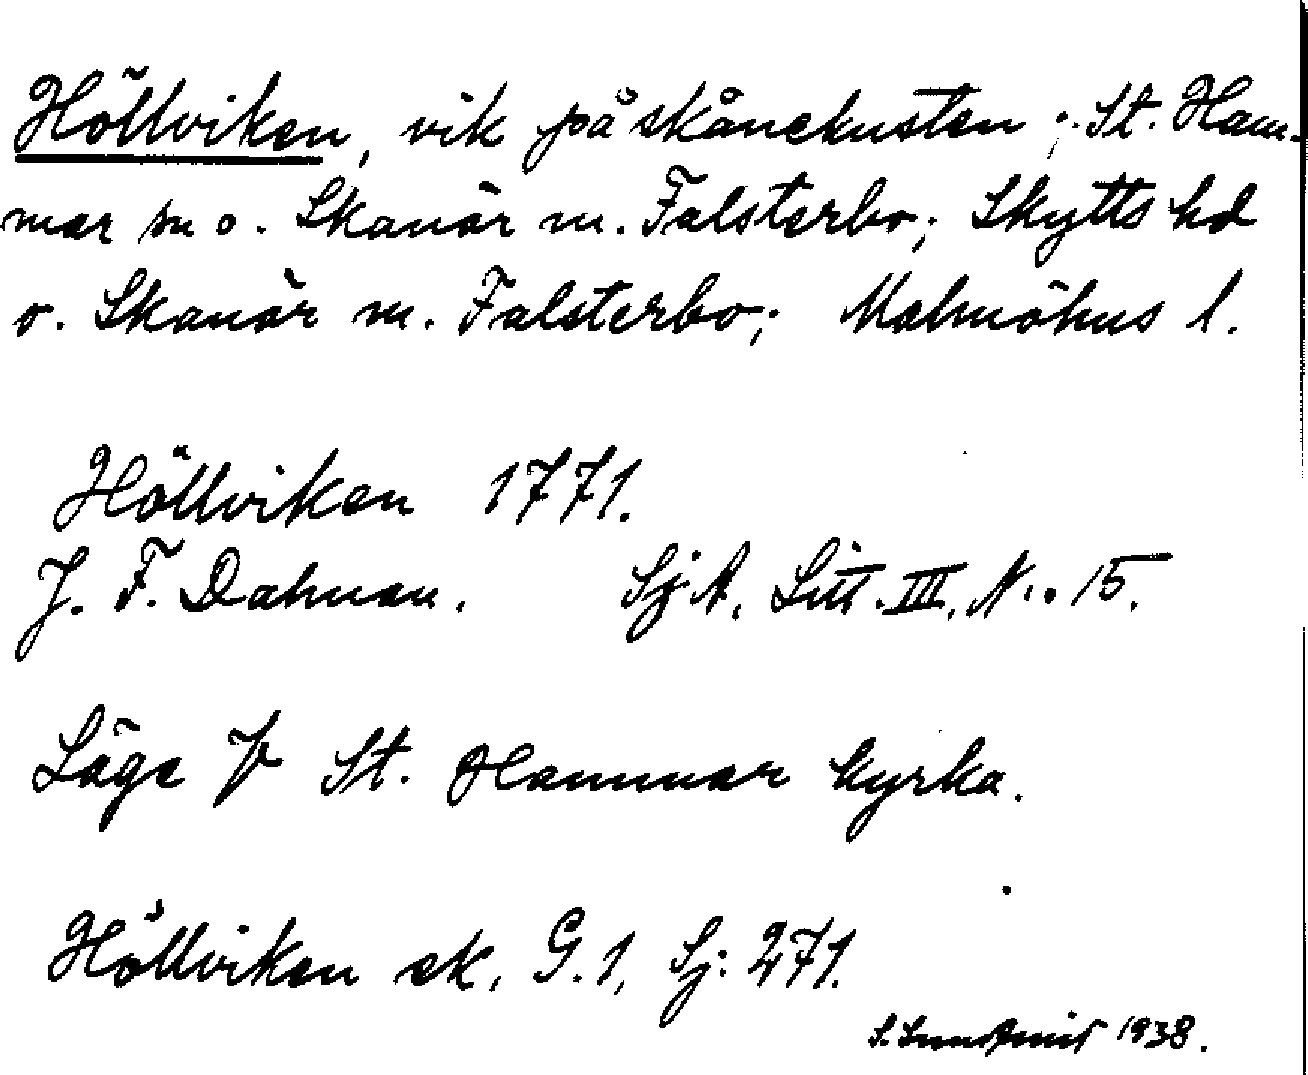 Höllviken, vik på skånekusten; St. Ham-
mar sn o. Skanör m. Falsterbo; Skytts hd
o. Skanör m. Falsterbo; Malmöhus l.
Höllviken 1771.
J. F. Dahman. Sj A, Litt. III, N:o 15.
Läge fr St. Hammar kyrka.
Höllviken ek. G. 1, Sj: 271.
S. 1938.